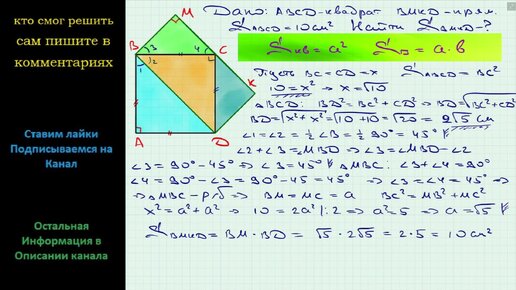 кто смог решить
сам пишите в
комментариях
Ставим лайки
Подписываемся на
Канал
Остальная
Информация в
Описании канала
M
B 3 4 C
1 2
K
A D
Дано: ABCD-квадрат BMKD-прям.
S ABCD = 10см² Найти S BMKD - ?
S кв = a² S п = a · b
Пусть BC = CD = x S ABCD = BC²
10 = x² → x = √10
△BCD: BD² = BC² + CD² → BD = √BC² + CD²
BD = √x² + x² = √10 + 10 = √20 = 2√5 см
∠1 = ∠2 = ½∠B = ½ 90° = 45°
∠2 + ∠3 = ∠MBD ⇒ ∠3 = ∠MBD - ∠2
∠3 = 90° - 45° ⇒ ∠3 = 45° △MBC: ∠3 + ∠4 = 90°
∠4 = 90° - ∠3 = 90° - 45 = 45° ⇒ ∠3 = ∠4 = 45° ⇒
⇒ △MBC - р/б ⇒ BM = MC = a BC² = MB² + MC²
x² = a² + a² ⇒ 10 = 2a² |: 2 ⇒ a² = 5 ⇒ a = √5
S BMKD = BM · BD = √5 · 2√5 = 2 · 5 = 10 см²